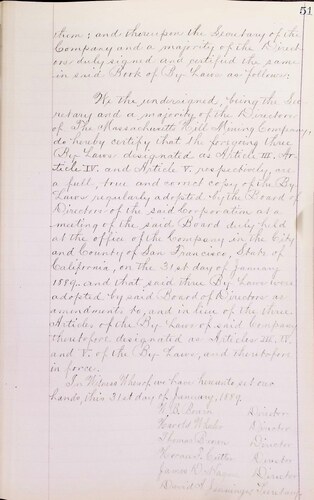 51
them; and thereupon the Secretary of the
Company and a majority of the Direct-
ors duly signed and certified the same
in said Book of By Laws as follows:
We the undersigned, being the Sec-
retary and a majority of the Directors
of The Massachusetts Hill Mining Company,
do hereby certify that the foregoing three
By Laws designated as Article III. Ar-
ticle IV. and Article V. respectively, are
a full, true and correct copy of the By
Laws regularly adopted by the Board of
Directors of the said Corporation at a
meeting of the said Board duly held
at the office of the Company in the City
and County of San Francisco, State of
California, on the 31st day of January
1889, and that said three By Laws were
adopted by said Board of Directors as
amendments to, and in lieu of the three
Articles of the By Laws of said Company
theretofore designated as Articles III. IV.
and V. of the By Laws, and theretofore
in force.
In Witness Whereof we have hereunto set our
hands, this 31st day of January, 1889.
W. B. Bourn Director
Director
Thomas Director
Director
James D. Director
David Secretary